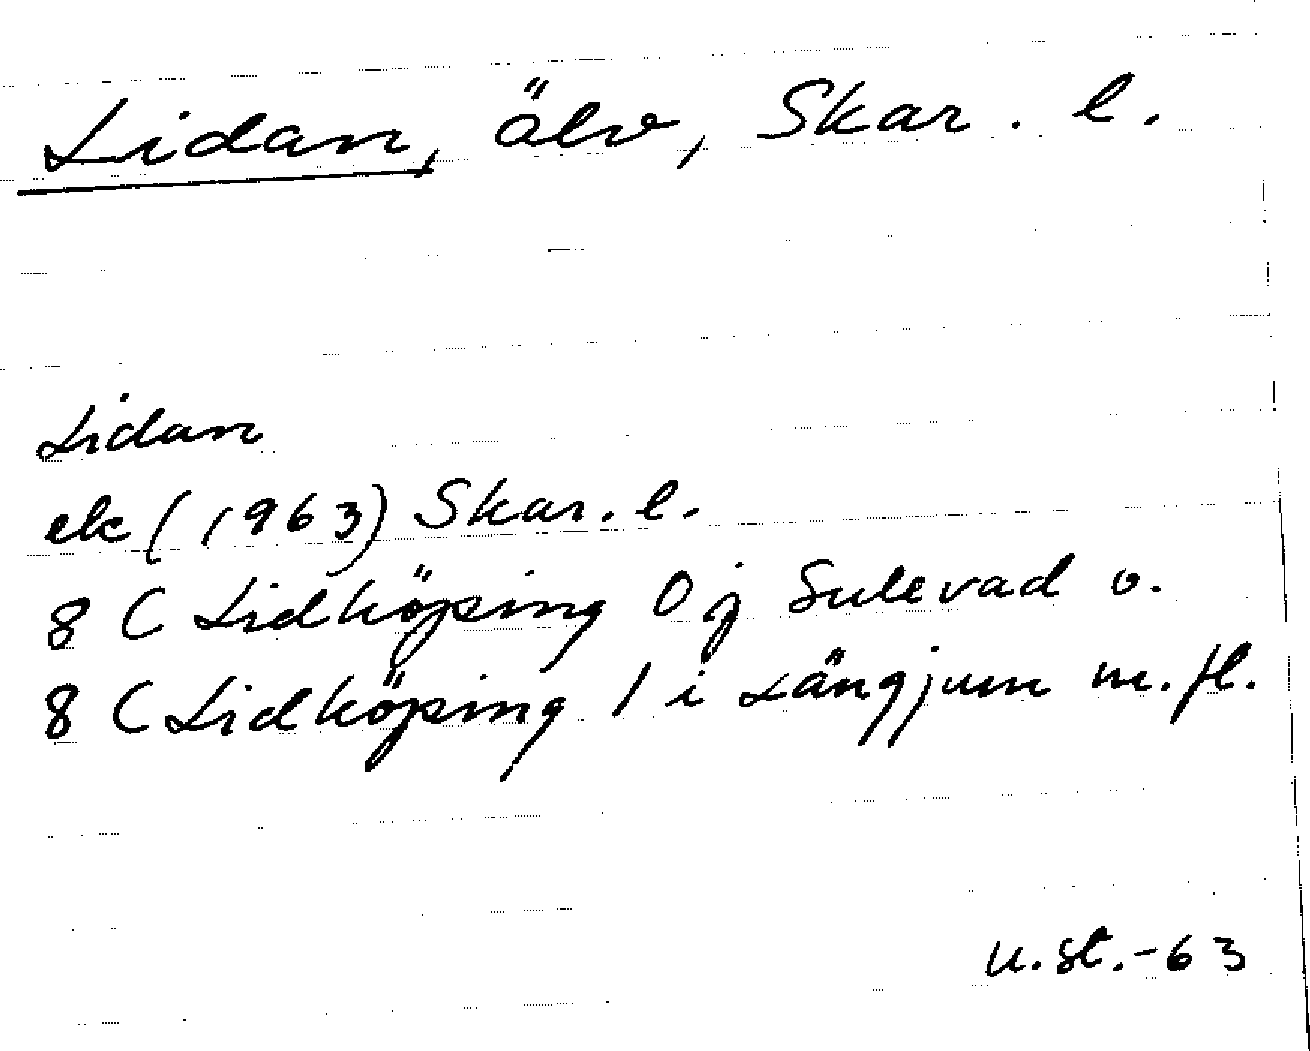 Lidan, älv, Skar. l.
Lidan
ek (1963) Skar. l.
8 C Lidköping 0 j Sulevad o.
8 C Lidköping 1 i Längjum m.fl.
u.st.-63